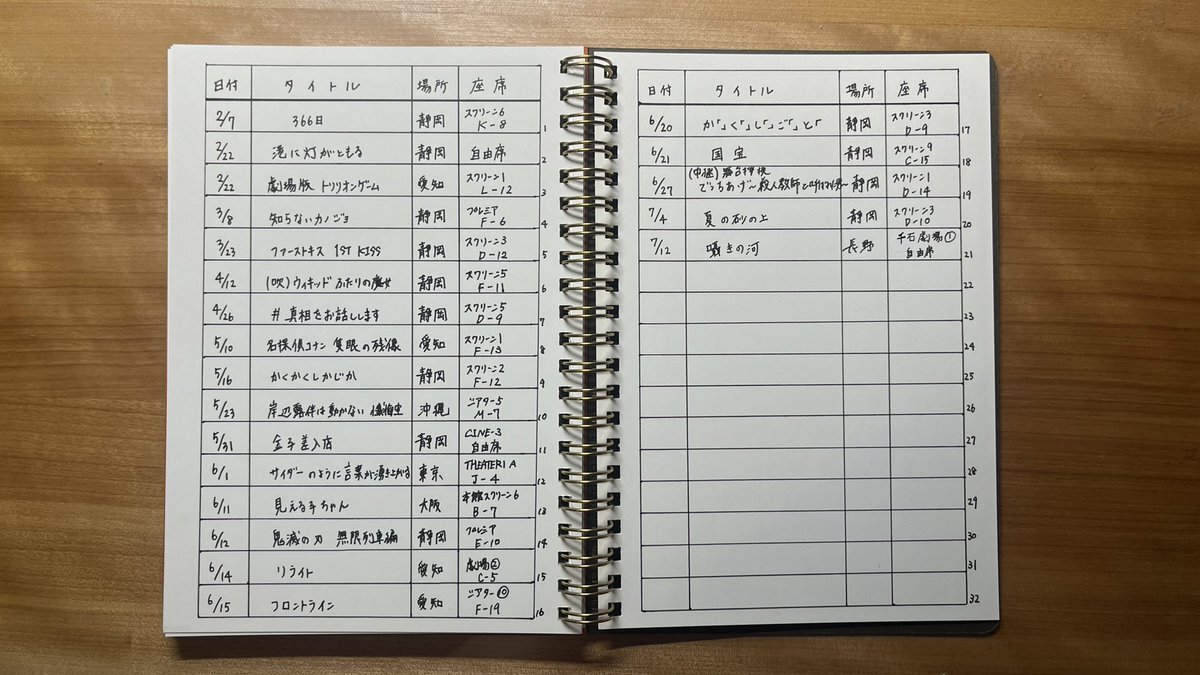 日付 タイトル 場所 座席
2/7 366日 静岡 スクリーン6 K-8 1
2/22 港に灯がともる 静岡 自由席 2
2/22 劇場版 トリリオンゲーム 愛知 スクリーン1 L-12 3
3/8 知らないカノジョ 静岡 プレミア F-6 4
3/23 ファーストキス 1ST KISS 静岡 スクリーン3 D-12 5
4/12 (吹)ウィキッド ふたりの魔女 静岡 スクリーン5 F-11 6
4/26 #真相をお話しします 静岡 スクリーン5 D-9 7
5/10 名探偵コナン 隻眼の残像 愛知 スクリーン1 F-13 8
5/16 かくかくしかじか 静岡 スクリーン2 F-12 9
5/23 岸辺露伴は動かない 懺悔室 沖縄 シアター5 M-7 10
5/31 金子差入店 静岡 CINE-3 自由席 11
6/1 サイダーのように言葉が湧き上がる 東京 THEATER1 A J-4 12
6/11 見える子ちゃん 大阪 本館スクリーン6 B-7 13
6/12 鬼滅の刃 無限列車編 静岡 プレミア E-10 14
6/14 リライト 愛知 劇場② C-5 15
6/15 フロントライン 愛知 シアター⑩ F-19 16
日付 タイトル 場所 座席
6/20 か「」く「」し「」ご「」と「 静岡 スクリーン3 D-9 17
6/21 国宝 静岡 スクリーン9 C-15 18
6/27 (中継)舞台挨拶 でっちあげ~殺人教師と呼ばれた男~ 静岡 スクリーン1 D-14 19
7/4 夏の砂の上 静岡 スクリーン3 D-10 20
7/12 囁きの河 長野 千石劇場① 自由席 21
22
23
24
25
26
27
28
29
30
31
32